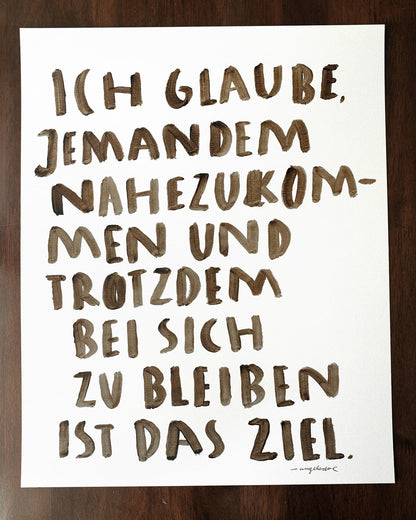 ICH GLAUBE,
JEMANDEM
NAHEZUKOM-
MEN UND
TROTZDEM
BEI SICH
ZU BLEIBEN
IST DAS ZIEL.